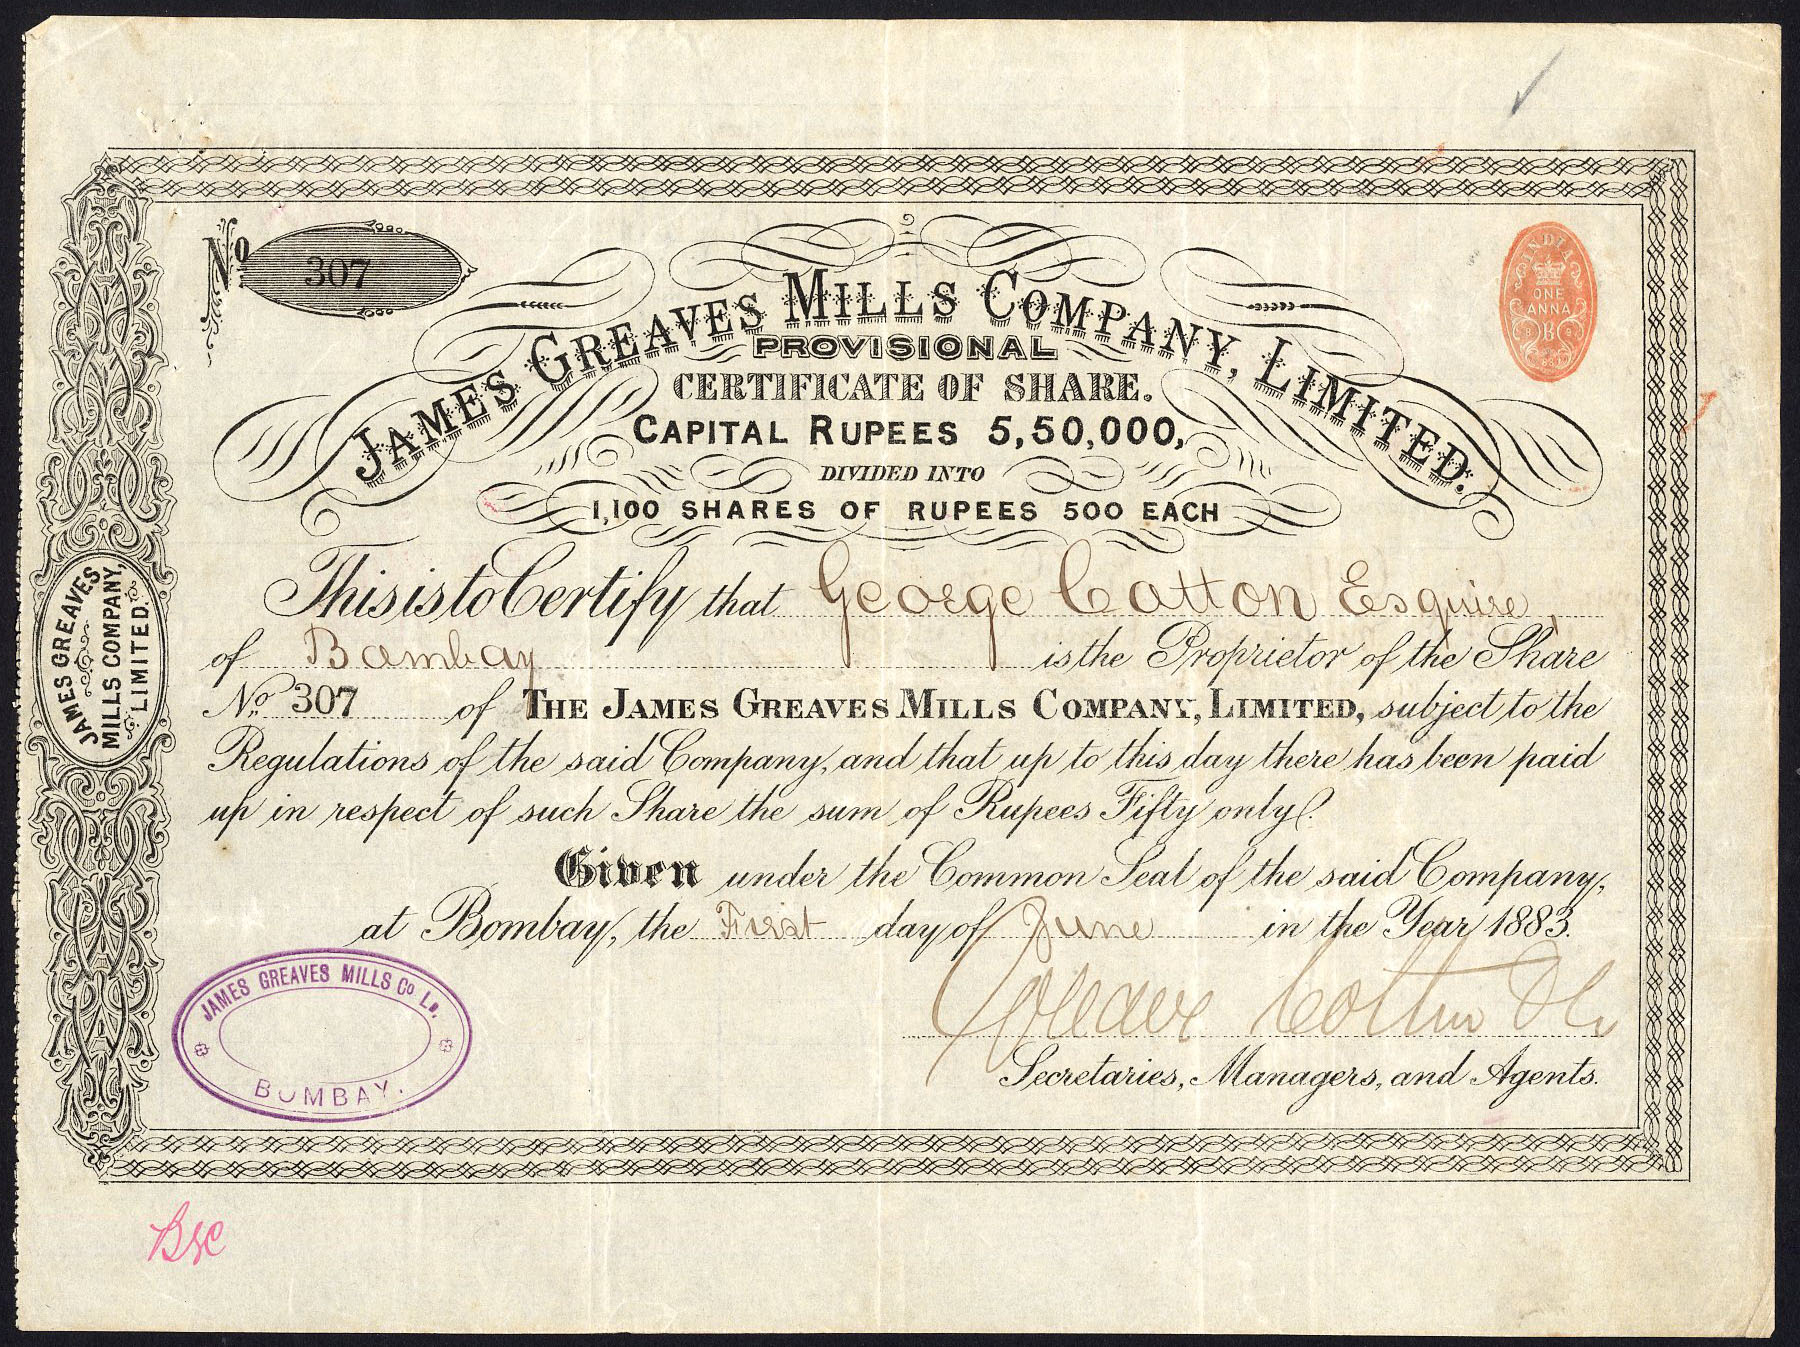 No 307
INDIA
ONE
ANNA
B
JAMES GREAVES MILLS COMPANY, LIMITED.
PROVISIONAL
CERTIFICATE OF SHARE.
CAPITAL RUPEES 5,50,000,
DIVIDED INTO
1,100 SHARES OF RUPEES 500 EACH
This is to Certify that George Cotton Esquire,
of Bombay is the Proprietor of the Share
No. 307 of THE JAMES GREAVES MILLS COMPANY, LIMITED, subject to the
Regulations of the said Company, and that up to this day there has been paid
up in respect of such Share the sum of Rupees Fifty only.
Given under the Common Seal of the said Company,
at Bombay, the First day of June in the Year 1883.
Cotton
Secretaries, Managers, and Agents.
JAMES GREAVES
MILLS COMPANY,
LIMITED.
JAMES GREAVES MILLS Co LD.
BOMBAY.